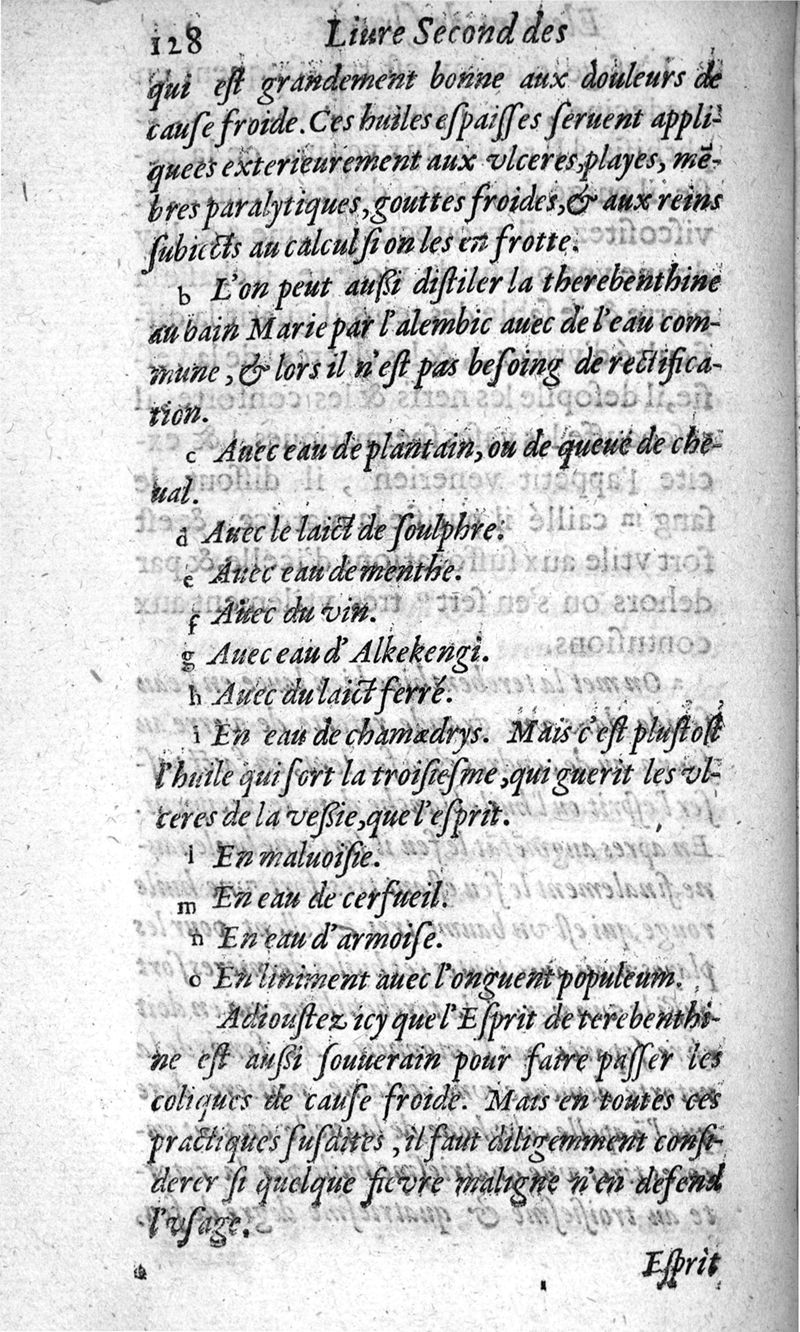 128 Liure Second des
qui eſt grandement bonne aux douleurs de
cauſe froide. Ces huiles eſpaiſſes ſeruent appli-
quees exterieurement aux vlceres, playes, mē-
bres paralytiques, gouttes froides, & aux reins
ſubiects au calcul ſi on les en frotte.
b L'on peut auſſi diſtiler la therebenthine
au bain Marie par l'alembic auec de l'eau com-
mune, & lors il n'eſt pas beſoing de rectifica-
tion.
c Auec eau de plantain, ou de queuë de che-
ual.
d Auec le laict de ſoulphre.
e Auec eau de menthe.
f Auec du vin.
g Auec eau d'Alkekengi.
h Auec du laict ferré.
i En eau de chamædrys. Mais c'eſt pluſtoſt
l'huile qui ſort la troiſieſme, qui guerit les vl-
ceres de la veſſie, que l'eſprit.
l En maluoiſie.
m En eau de cerfueil.
n En eau d'armoiſe.
o En liniment auec l'onguent populeum.
Adiouſtez icy que l'Eſprit de terebenthi-
ne eſt auſſi ſouuerain pour faire paſſer les
coliques de cauſe froide. Mais en toutes ces
practiques ſuſdites, il faut diligemment conſi-
derer ſi quelque fieure maligne n'en defend
l'vſage.
Eſprit